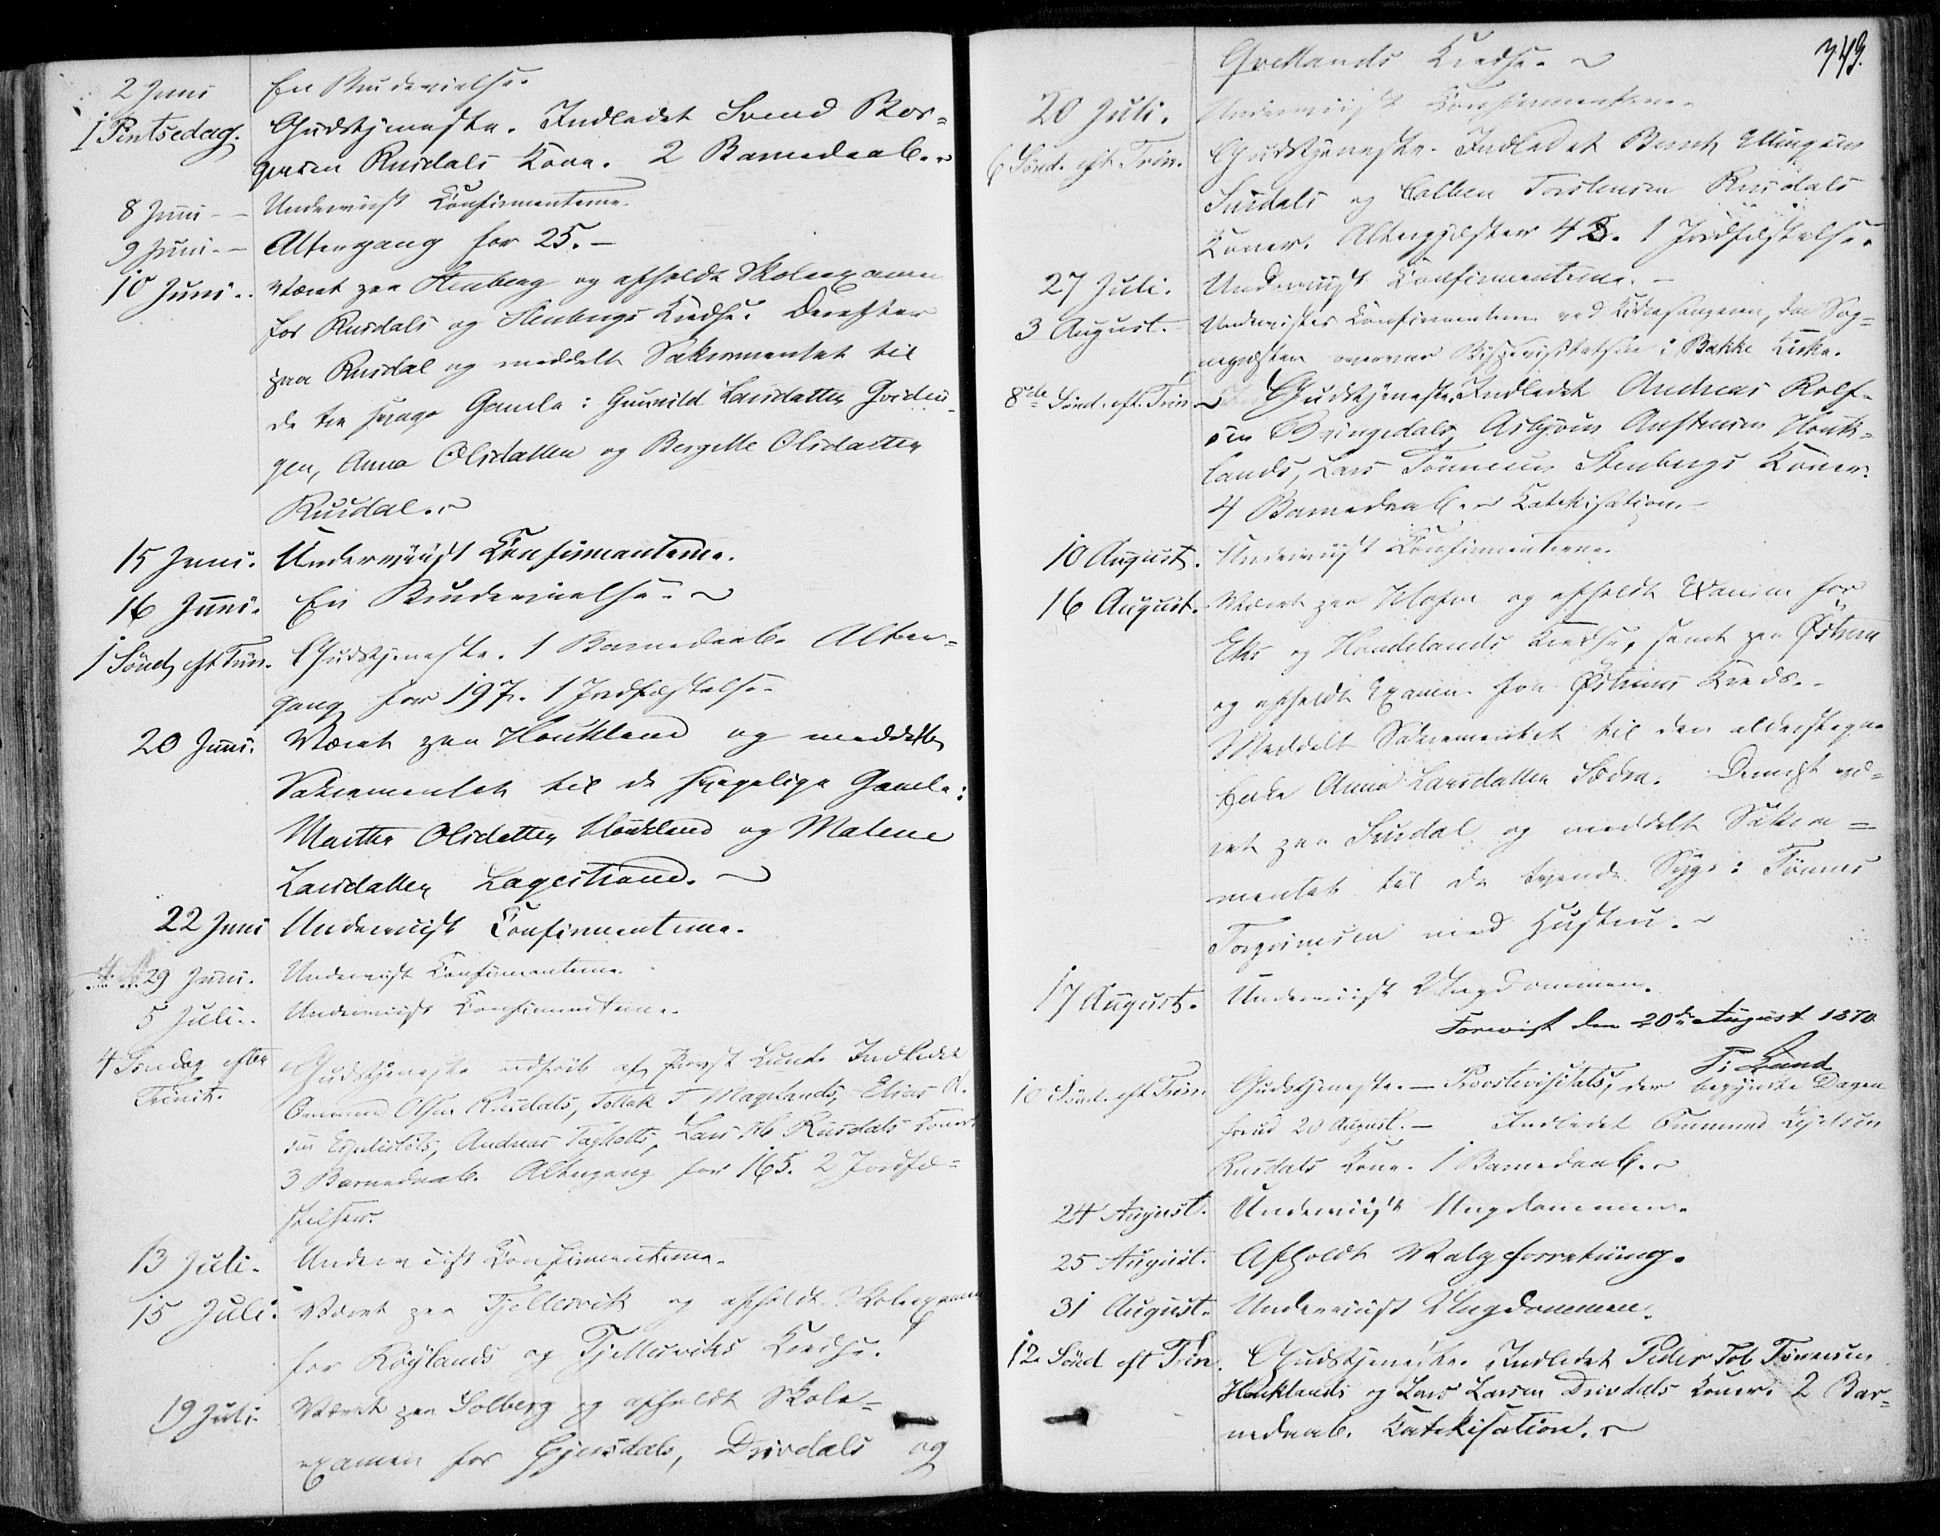 2 Juni En Brudevielse.
1 Pintsedag. Gudstjeneste. Indledet Svend Bor=
gesen Rusdals Kone. 2 Barnedaab.
8 Juni - Underviist Konfirmanterne.
9 Juni. - Altergang for 25. -
10 Juni. Været paa Stenberg og afholdt Skoleexamen
for Rusdals og Stenbergs Kredse. Derefter
paa Rusdal og meddelt Sakramentet til
de tre svage Gamle: Gunvild Larsdatter
Anna Olsdatter og Bergitte Olsdatter
Rusdal.
15 Juni. Underviist Konfirmanterne.
16 Juni. En Brudevielse.
1 Sönd. eft Trin. Gudstjeneste. 1 Barnedaab. Alter=
gang for 197. 1 Jordfæstelse.
20 Juni. Været paa Houkland og meddelt
Sakramentet til de svagelige Gamle:
Marthe Olsdatter Houkland og Malene
Larsdatter Lagestrand.
22 Juni Underviist Konfirmanterne.
29 Juni. Underviist Konfirmanterne.
5 Juli. Underviist Konfirmanterne.
4 Søndag efter Gudstjeneste udført af Provst Lund. Indledet
Trinit. Ommund Olsen Rusdals, Tollak T Magelands, Elias O.
sen Andreas Lars Rusdals Koner
3 Barnedaab. Altergang for 165. 2 Jordfæ=
stelser.
13 Juli. Underviist Konfirmanterne.
15 Juli. Været paa Tjellesvik og afholdt Skoleexamen
for Röylands og Tjellesviks Kredse.
19 Juli Været paa Solberg og afholdt Skole=
examen for Gjersdals, Drivdals og
349.
Kredse.
20 Juli. Underviist Konfirmanterne.
6 Sönd. eft. Trin. Gudstjeneste. Indledet Bernt Ellingsen
Sirdals og Tolben Torstensen Rusdals
Koner. Altergjæster 43. 1 Jordfæstelse.
27 Juli. Underviist Konfirmanterne. -
3 August. Undervistes Konfirmanterne ved Kirkesangeren, da Sog=
nepræsten overvar Bispevisitatsen i Bakke Kirke.
8de Sönd. eft. Trin Gudstjeneste. Indledet Andreas Rolf-
sen Bringedals, Asbjörn Austensen Houk=
lands, Lars Tönnesen Stenbergs Koner.
4 Barnedaab. Katekisation.
10 August. Underviist Konfirmanterne.
16 August. Været paa og afholdt Examen for
Eks og Haudelands Kredse, samt paa
og afholdt Examen for Kreds. -
Meddelt Sakramentet til den alderstegne
Enke Anna Larsdatter Dernæst væ=
ret paa Sirdal og meddelt Sakra=
mentet til de tvende Syge: Tönnes
Torgrimsen med Hustru.
17 August. Underviist Ungdommen.
Foreviist den 20de August 1870
Lund
10 Sönd. eft Trin. Gudstjeneste. - Provstevisitats, der begyndte Dagen
forud 20 August. - Indledet Ommund
Rusdals Kone. 1 Barnedaab.
24 August. Underviist Ungdommen.
25 August. Afholdt Valgforretning.
31 August. Underviist Ungdommen.
12 Sönd eft Trin. Gudstjeneste. Indledet Peder Tob. Tönnesen
Houklands og Lars Larsen Drivdals Koner. 2 Bar=
nedaab. Katekisation.